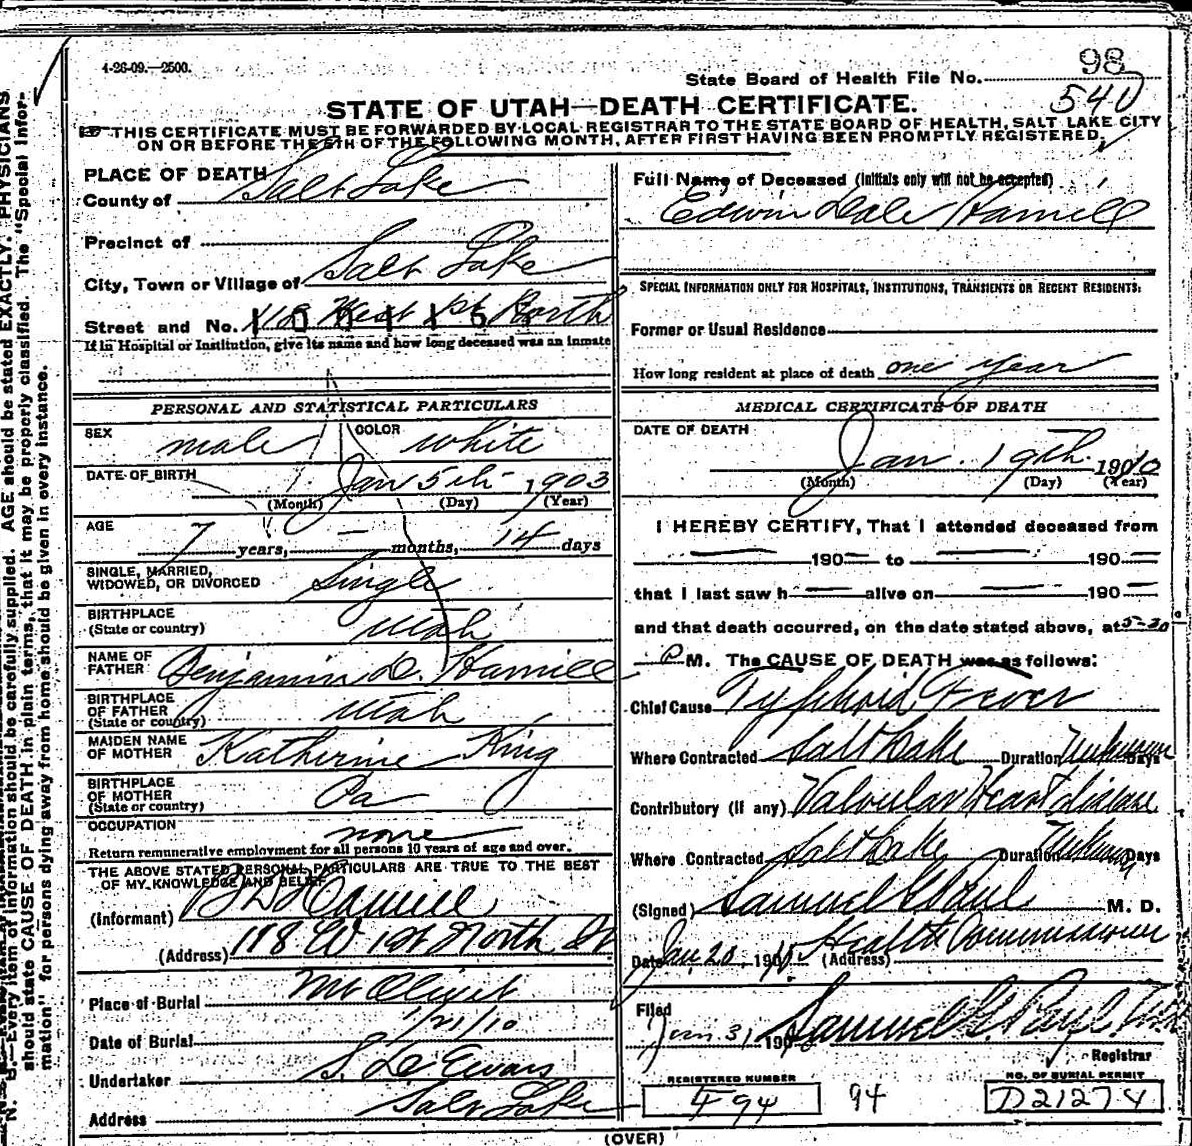 4-26-09.—2500.
98
State Board of Health File No.
540
STATE OF UTAH—DEATH CERTIFICATE.
THIS CERTIFICATE MUST BE FORWARDED BY LOCAL REGISTRAR TO THE STATE BOARD OF HEALTH, SALT LAKE CITY
ON OR BEFORE THE 5TH OF THE FOLLOWING MONTH, AFTER FIRST HAVING BEEN PROMPTLY REGISTERED.
PLACE OF DEATH
County of Salt Lake
Precinct of
City, Town or Village of Salt Lake
Street and No. 118 West 1st North
If in Hospital or Institution, give its name and how long deceased was an inmate
PERSONAL AND STATISTICAL PARTICULARS
SEX male COLOR white
DATE OF BIRTH Jan 5th 1903
(Month) (Day) (Year)
AGE 7 years, — months, 14 days
SINGLE, MARRIED,
WIDOWED, OR DIVORCED Single
BIRTHPLACE
(State or country) Utah
NAME OF
FATHER Benjamin D. Hamill
BIRTHPLACE
OF FATHER
(State or country) Utah
MAIDEN NAME
OF MOTHER Katherine King
BIRTHPLACE
OF MOTHER
(State or country) Pa
OCCUPATION none
Return remunerative employment for all persons 10 years of age and over.
THE ABOVE STATED PERSONAL PARTICULARS ARE TRUE TO THE BEST
OF MY KNOWLEDGE AND BELIEF
(Informant) B D Hamill
(Address) 118 W 1st North St
Place of Burial Mt Olivet
Date of Burial 1/21/10
Undertaker S. D Evans
Address Salt Lake
Full Name of Deceased (Initials only will not be accepted)
Edwin Dale Hamill
SPECIAL INFORMATION ONLY FOR HOSPITALS, INSTITUTIONS, TRANSIENTS OR RECENT RESIDENTS:
Former or Usual Residence
How long resident at place of death one year
MEDICAL CERTIFICATE OF DEATH
DATE OF DEATH
Jan. 19th 1910
(Month) (Day) (Year)
I HEREBY CERTIFY, That I attended deceased from
— 190— to — 190—
that I last saw h— alive on — 190—
and that death occurred, on the date stated above, at 5-30
P M. The CAUSE OF DEATH was as follows:
Chief Cause Typhoid Fever
Where Contracted Salt Lake Duration Unknown Days
Contributory (if any) Valvular Heart disease
Where Contracted Salt Lake Duration Unknown Days
(Signed) Samuel G Paul M. D.
Date Jan 20, 1910 (Address) Health Commissioner
Filed
Jan 31 190 Samuel G. Paul
Registrar
REGISTERED NUMBER
94
94
NO. OF BURIAL PERMIT
(OVER)
N. B.—Every item of information should be carefully supplied. AGE should be stated EXACTLY. PHYSICIANS
should state CAUSE OF DEATH in plain terms, that it may be properly classified. The "Special Infor-
mation" for persons dying away from home should be given in every instance.